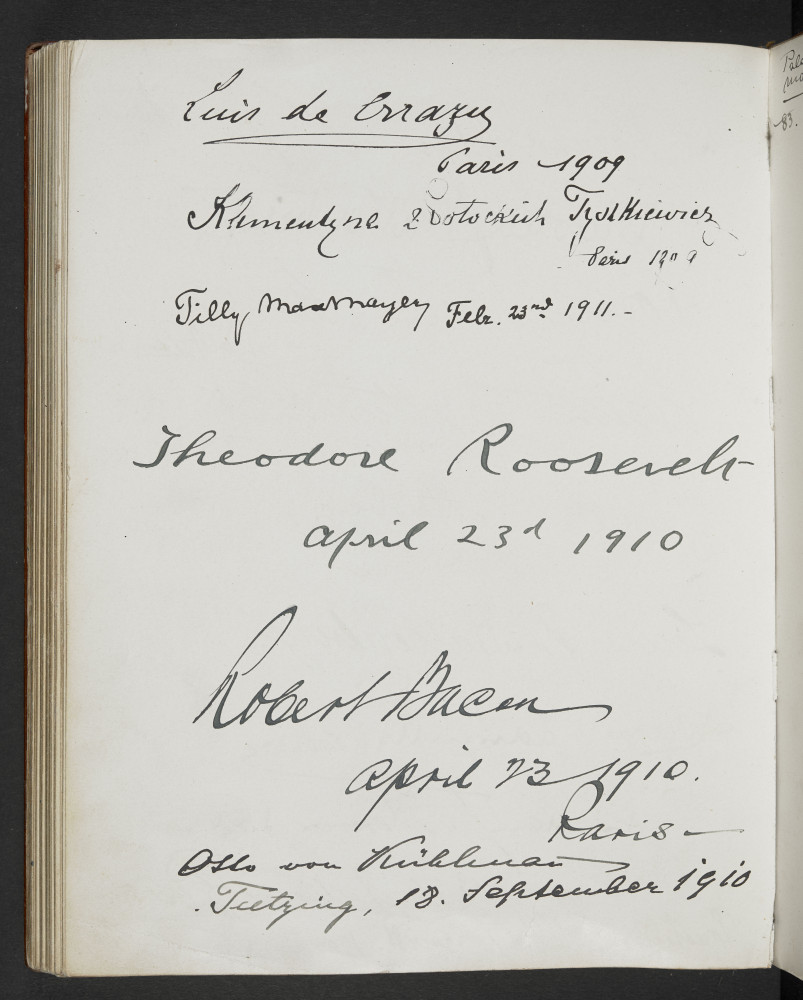 Luis de Errazu
Paris 1909
Klementyna z Potockich Tyszkiewicz
Paris 1909
Tilly Feb. 23nd 1911.-
Theodore Roosevelt
april 23d 1910
Robert Bacon
April 23 1910.
Paris -
Otto von Kühlmann
Tutzing, 18. September 1910
83.